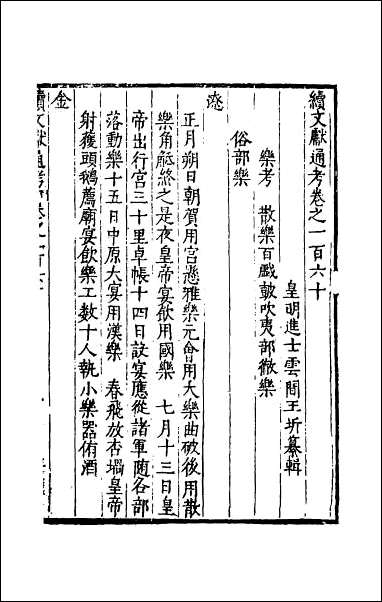 續文獻通考卷之一百六十
皇明進士雲間王圻纂輯
樂考　散樂百戲鼓吹夷部徹樂
俗部樂
遼
正月朔日朝賀用宮懸雅樂元會用大樂曲破後用散
樂角觝終之是夜皇帝宴飲用國樂　七月十三日皇
帝出行宮三十里卓帳十四日設宴應從諸軍随各部
落動樂十五日中原大宴用漢樂　春飛放杏堝皇帝
射獲頭鵝薦廟宴飲樂工數十人執小樂器侑酒
金
續文獻通考